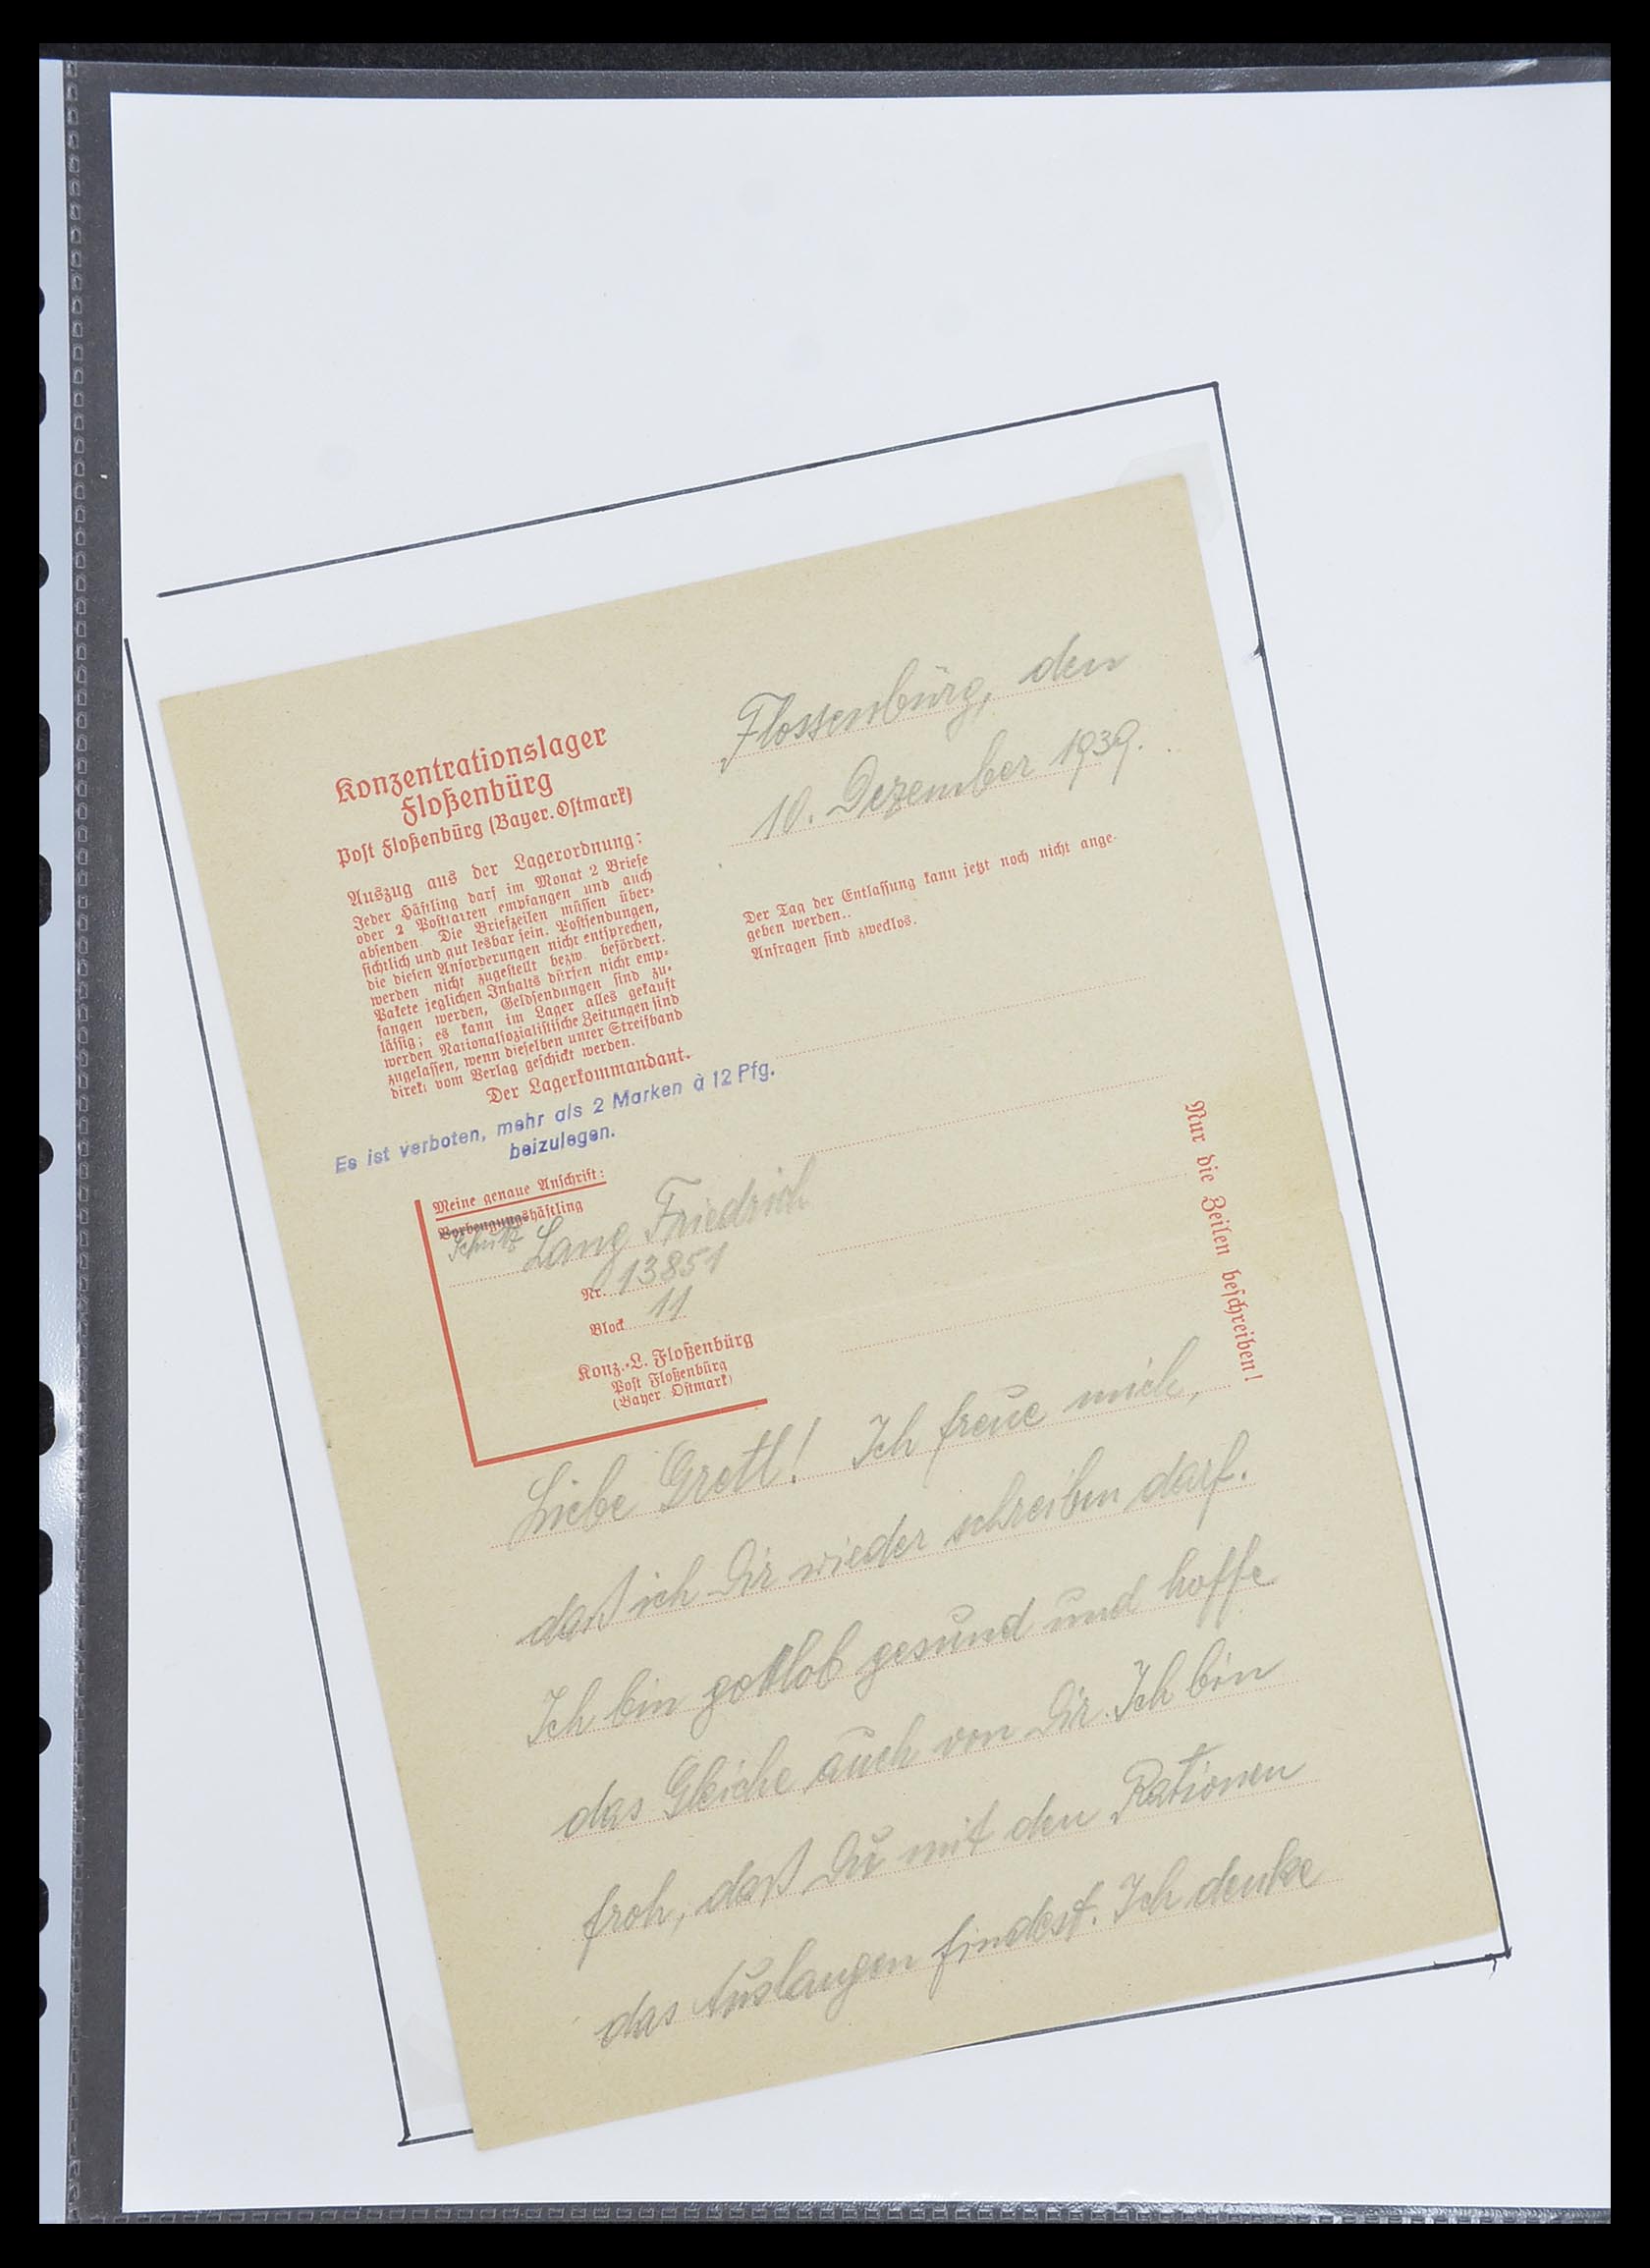 Konzentrationslager
Floßenbürg
Post Floßenbürg (Bayer. Ostmark)
Auszug aus der Lagerordnung:
Jeder Häftling darf im Monat 2 Briefe
oder 2 Postkarten empfangen und auch
absenden. Die Briefzeilen müssen über-
sichtlich und gut lesbar sein. Postsendungen,
die diesen Anforderungen nicht entsprechen,
werden nicht zugestellt bezw. befördert.
Pakete jeglichen Inhalts dürfen nicht emp-
fangen werden, Geldsendungen sind zu-
lässig; es kann im Lager alles gekauft
werden Nationalsozialistische Zeitungen sind
zugelassen, wenn dieselben unter Streifband
direkt vom Verlag geschickt werden.
Der Lagerkommandant.
Es ist verboten, mehr als 2 Marken à 12 Pfg.
beizulegen.
Flossenbürg, den
10. Dezember 1939.
Der Tag der Entlassung kann jetzt noch nicht ange-
geben werden..
Anfragen sind zwecklos.
Meine genaue Anschrift:
Vorbeugungshäftling
Schutz Lang Friedrich
Nr. 13851
Block 11
Konz.-L. Floßenbürg
Post Floßenbürg
(Bayer. Ostmark)
Nur die Zeilen beschreiben!
Liebe Gretl! Ich freue mich,
daß ich Dir wieder schreiben darf.
Ich bin gottlob gesund und hoffe
das Gleiche auch von Dir. Ich bin
froh, daß Du mit den Rationen
das Auslangen findest. Ich denke